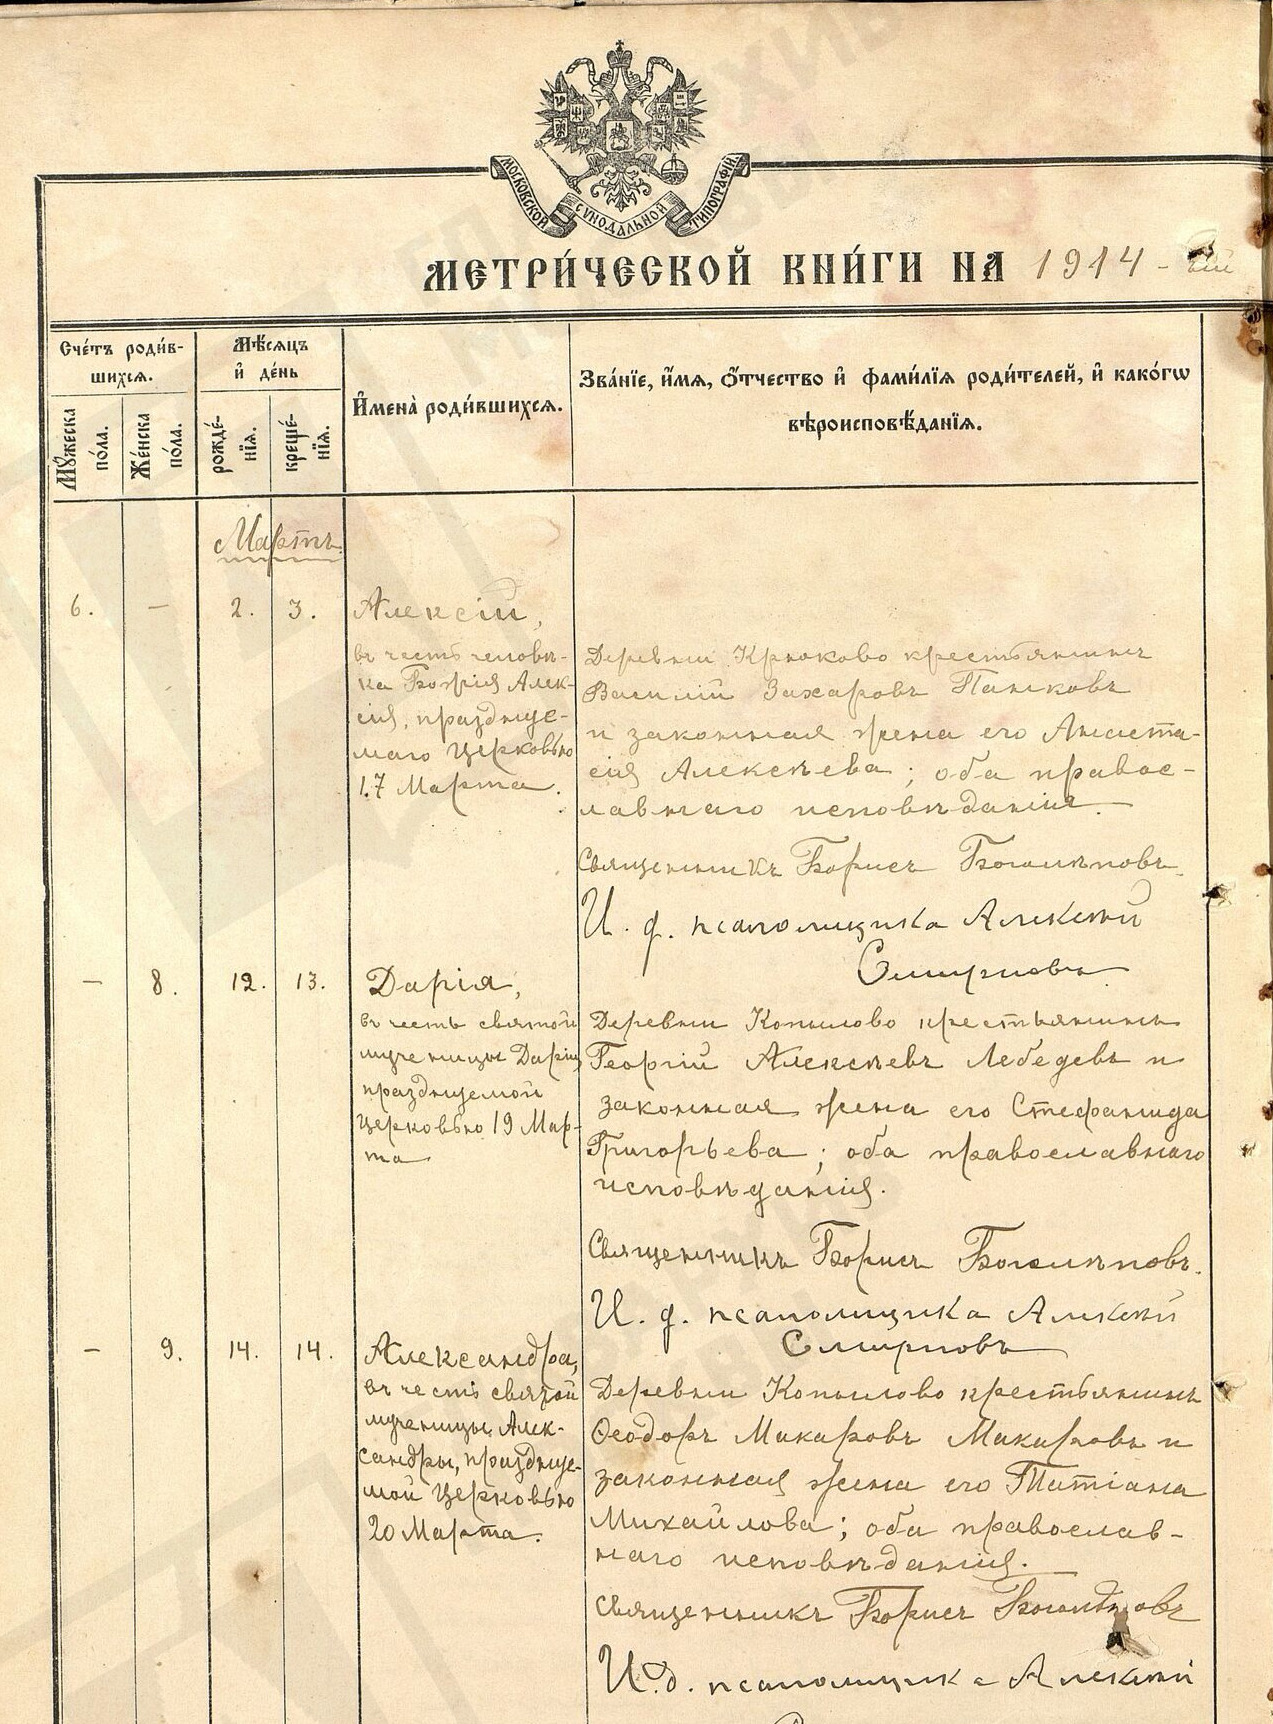 МОСКОВСКОЙ СѴНОДАЛЬНОЙ ТИПОГРАФІИ
МЕТРИ́ЧЕСКОЙ КНИ́ГИ НА 1914-ый
Сче́тъ роди́в-
шихся.
Мѣ́сяцъ
и҆ де́нь
И҆мена̀ роди́вшихся.
Зва́нїе, и҆́мя, ѻ҆́тчество и҆ фами́лїя роди́телей, и҆ како́гѡ
вѣроисповѣ́данїя.
Мꙋ́жеска
по́ла.
Же́нска
по́ла.
рожде́-
нїя.
креще́-
нїя.
Мартъ.
6. — 2. 3. Алексій,
въ честь человѣ-
ка Божія Алек-
сія, празднуе-
маго Церковью
17 Марта.
Деревни Крюково крестьянинъ
Василій Захаровъ Паньковъ
и законная жена его Анаста-
сія Алексѣева; оба правос-
лавнаго исповѣданія.
Священникъ Борисъ Боголѣповъ.
И. д. псаломщика Алексѣй
Смирновъ
— 8. 12. 13. Дарія,
въ честь святой
мученицы Даріи,
празднуемой
Церковью 19 Мар-
та
Деревни Копылово крестьянинъ
Георгій Алексѣевъ Лебедевъ и
законная жена его Стефанида
Григорьева; оба православнаго
исповѣданія.
Священникъ Борисъ Боголѣповъ.
И. д. псаломщика Алексѣй
Смирновъ
— 9. 14. 14. Александра,
въ честь святой
мученицы Алек-
сандры, празднуе-
мой Церковью
20 Марта.
Деревни Копылово крестьянинъ
Ѳеодоръ Макаровъ Макаровъ и
законная жена его Татіана
Михайлова; оба православ-
наго исповѣданія.
Священникъ Борисъ Боголѣповъ
И. д. псаломщика Алексѣй